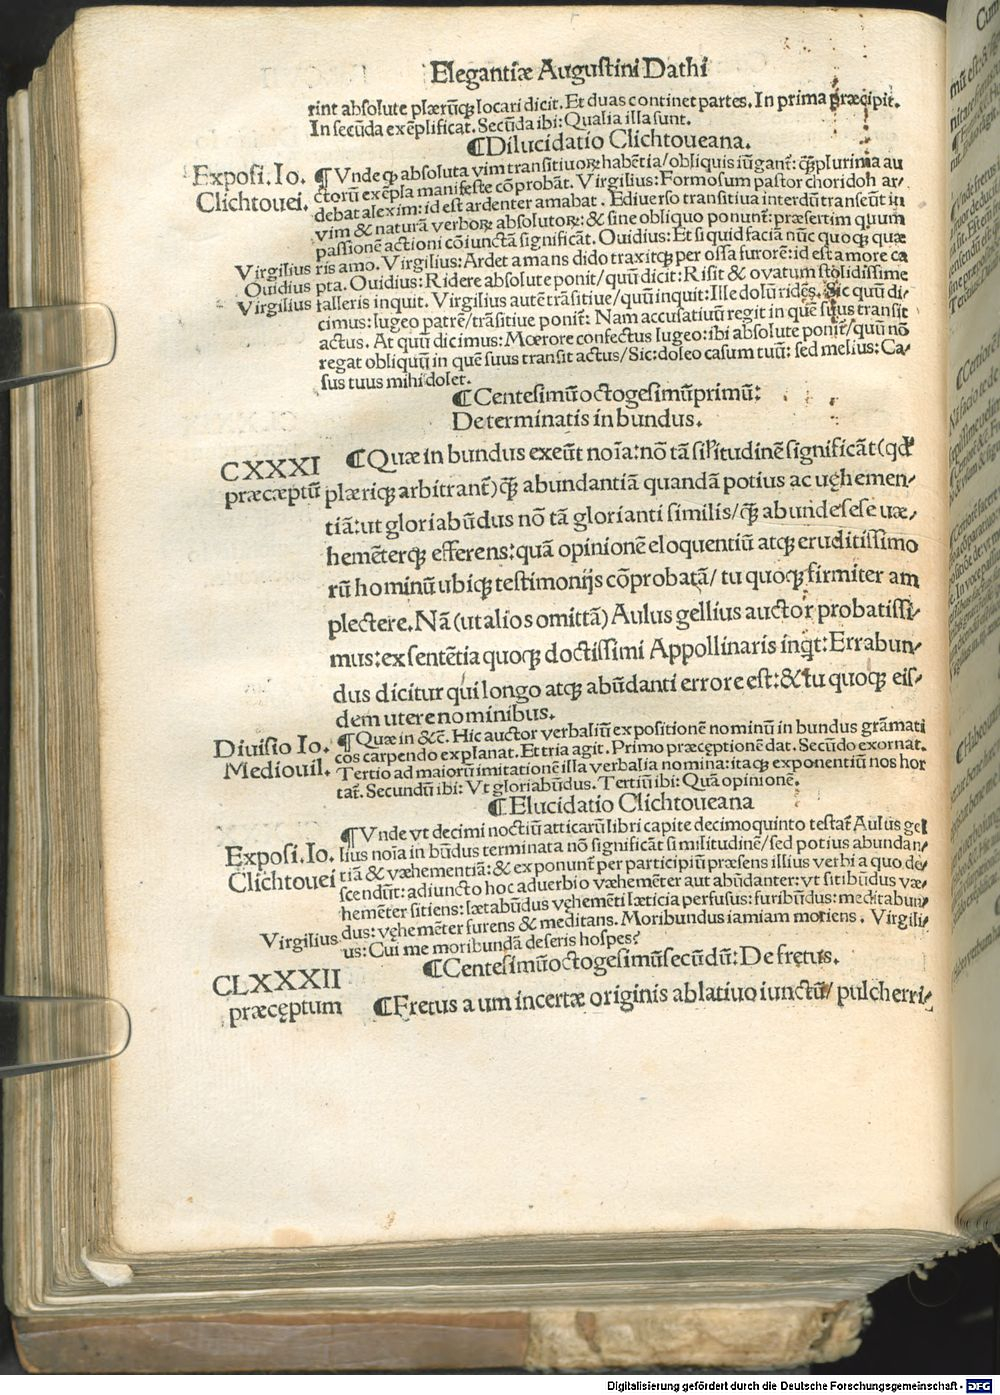 Elegantiæ Augustini Dathi
rint absolute plærūqꝫ locari dicit. Et duas continet partes. In prima præcipit.
In secūda exēplificat. Secūda ibi: Qualia illa sunt.
¶Dilucidatio Clichtoueana.
Exposi. Io.
Clichtouei.
¶ Vnde qꝫ absoluta vim transitiuorꝝ habētia/obliquis iūgant᷑: qꝫplurima au
ctorū exēpla manifeste cōprobāt. Virgilius: Formosum pastor choridoh ar,
debat alexim: id est ardenter amabat. Ediuerso transitiua interdū transeūt in
vim & naturā verborꝝ absolutorꝝ: & sine obliquo ponunt᷑: præsertim quum
passionē actioni cōiunctā significāt. Ouidius: Et si quid faciā nūc quoqꝫ quæ
Virgilius ris amo. Virgilius: Ardet amans dido traxitqꝫ per ossa furorē: id est amore ca
Ouidius pta. Ouidius: Ridere absolute ponit/quū dicit: Risit & ovatum stolidissime
Virgilius falleris inquit. Virgilius autē trāsitiue/quū inquit: Ille dolū ridēs. Sic quū di,
cimus: lugeo patrē/trāsitiue ponit᷑: Nam accusatiuū regit in quē suus transit
actus. At quū dicimus: Mœrore confectus lugeo: ibi absolute ponit᷑/quū nō
regat obliquū in quē suus transit actus/Sic: doleo casum tuū: sed melius: Ca,
sus tuus mihi dolet.
¶Centesimū octogesimū primū:
De terminatis in bundus.
CXXXI
præcæptū
¶Quæ in bundus exeūt noīa: nō tā sil'itudinē significāt (qd'
plæriqꝫ arbitrant᷑) qꝫ abundantiā quandā potius ac uęhemen,
tiā: ut gloriabūdus nō tā glorianti similis/qꝫ abunde sese uæ,
hemēterqꝫ efferens: quā opinionē eloquentiū atqꝫ eruditissimo
rū hominū ubiqꝫ testimonijs cōprobatā/ tu quoqꝫ firmiter am
plectere. Nā (ut alios omittā) Aulus gellius auctor probatissi,
mus: ex sentētia quoqꝫ doctissimi Appollinaris inqt: Errabun,
dus dicitur qui longo atqꝫ abūdanti errore est: & tu quoqꝫ eis,
dem utere nominibus.
Diuisio Io.
Mediouil.
¶Quæ in &c̄. Hic auctor verbaliū expositionē nominū in bundus grāmati
cos carpendo explanat. Et tria agit. Primo præceptionē dat. Secūdo exornat.
Tertio ad maiorū imitationē illa verbalia nomina: itaqꝫ exponentiū nos hor
tat᷑. Secundū ibi: Vt gloriabūdus. Tertiū ibi: Quā opinionē.
¶Elucidatio Clichtoueana
Exposi. Io.
Clichtouei
¶Vnde vt decimi noctiū atticarū libri capite decimoquinto testat᷑ Aulus gel
lius noīa in būdus terminata nō significāt similitudinē/sed potius abundan,
tiā & væhementiā: & exponunt᷑ per participiū præsens illius verbi a quo de,
scendūt: adiuncto hoc aduerbio væhemēter aut abūdanter: vt sitibūdus væ,
hemēter sitiens: lætabūdus vęhemēti læticia perfusus: furibūdus: meditabun,
dus: vęhemēter furens & meditans. Moribundus iamiam moriens. Virgili,
Virgilius us: Cui me moribundā deseris hospes?
¶Centesimū octogesimū secūdū: De fretus.
CLXXXII
præcęptum
¶Fretus a um incertæ originis ablatiuo iunctū/ pulcherri,
Digitalisierung gefördert durch die Deutsche Forschungsgemeinschaft - DFG